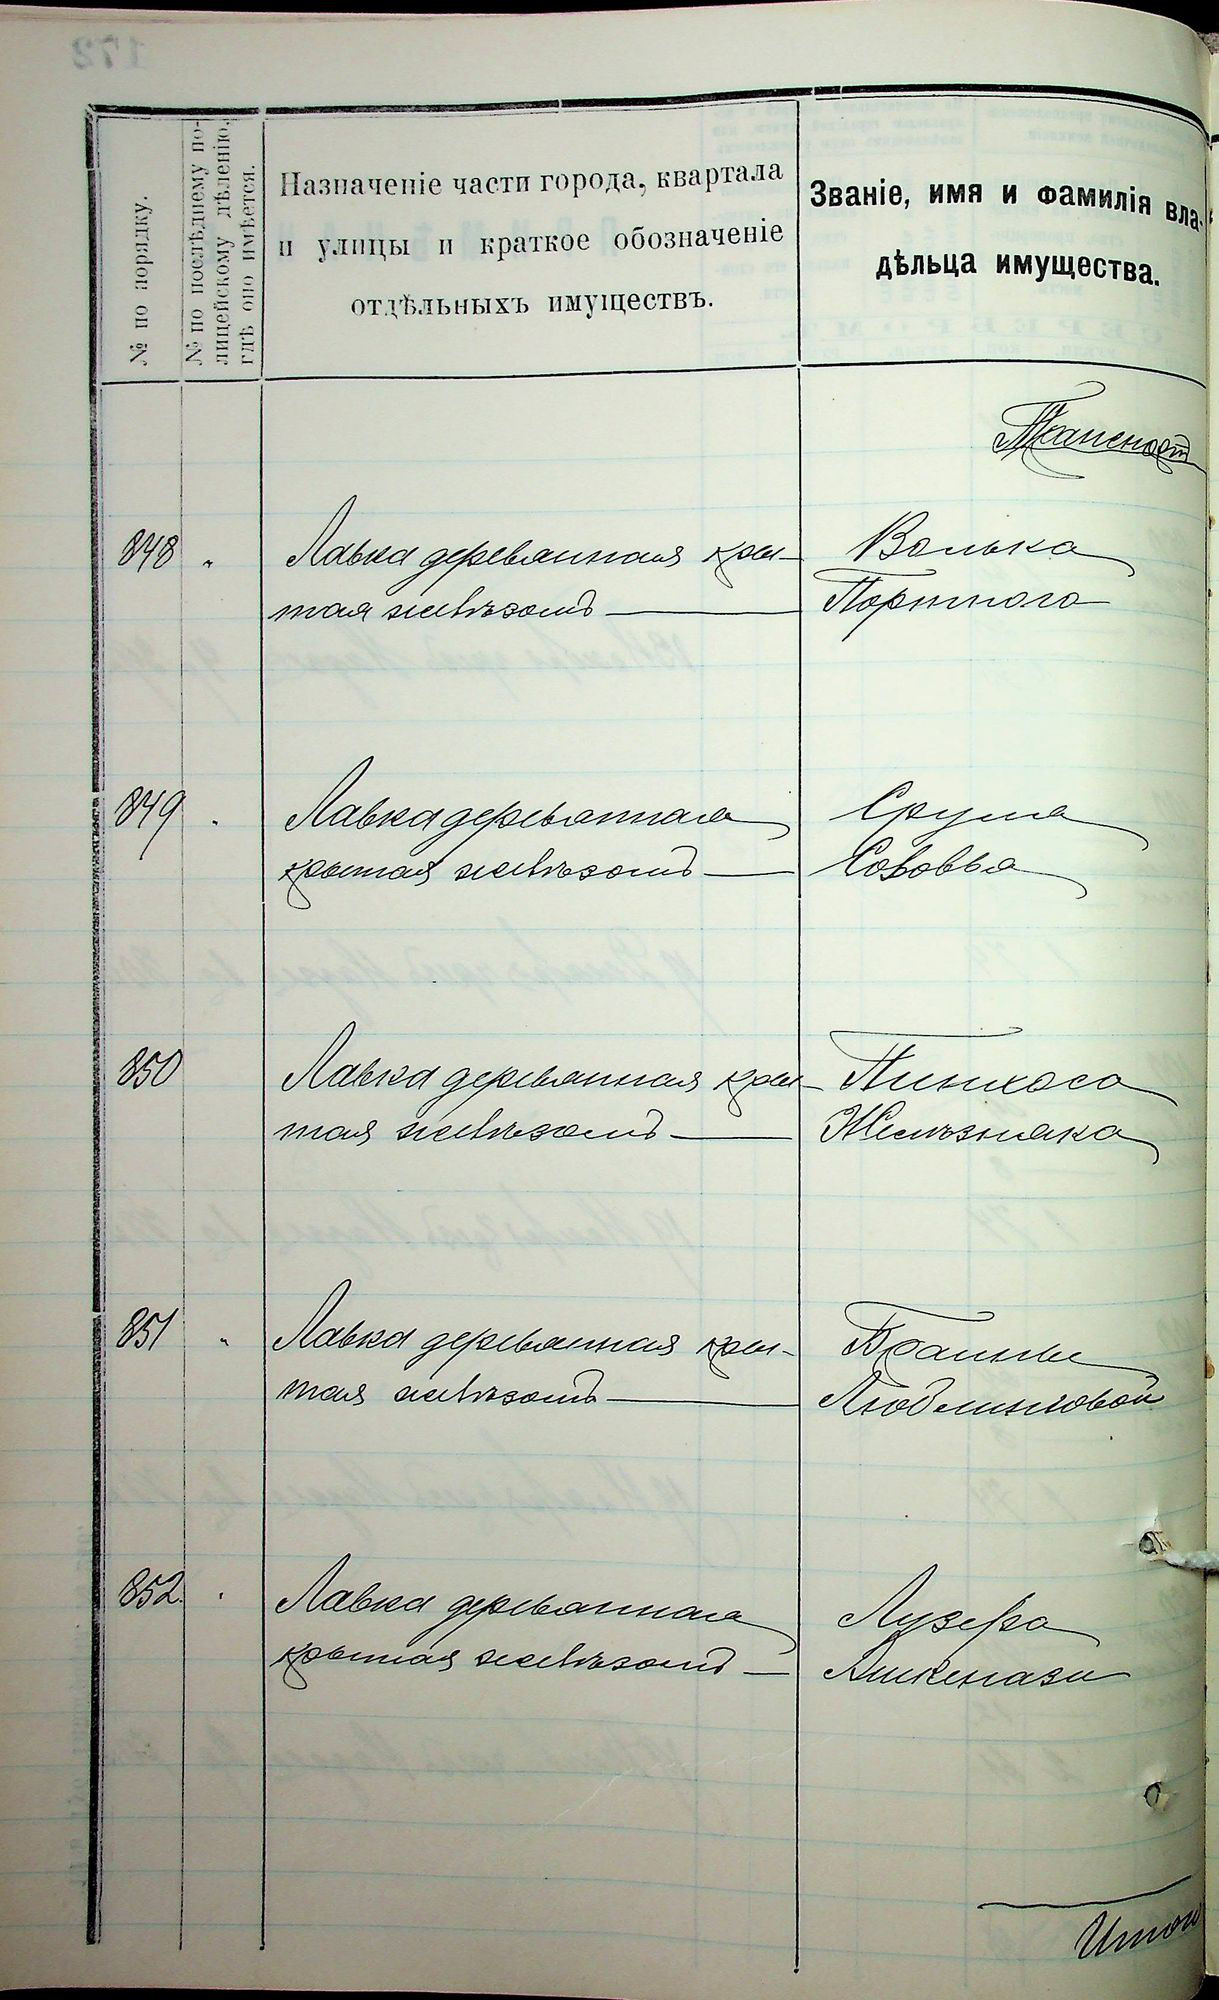 № по порядку.
№ по послѣднему по-
лицейскому дѣленію,
гдѣ оно имѣется.
Назначеніе части города, квартала
и улицы и краткое обозначеніе
отдѣльныхъ имуществъ.
Званіе, имя и фамилія вла-
дѣльца имущества.
Транспорт
848 „ Лавка деревянная кры- Волька
тая желѣзомъ Портного
849 „ Лавка деревянная Срула
крытая желѣзомъ Соловья
850 Лавка деревянная кры- Пинхаса
тая желѣзомъ Желѣзняка
851 „ Лавка деревянная кры- Брайны
тая желѣзомъ Люблинковой
852. „ Лавка деревянная Лузера
крытая желѣзомъ Ашкенази
Итого